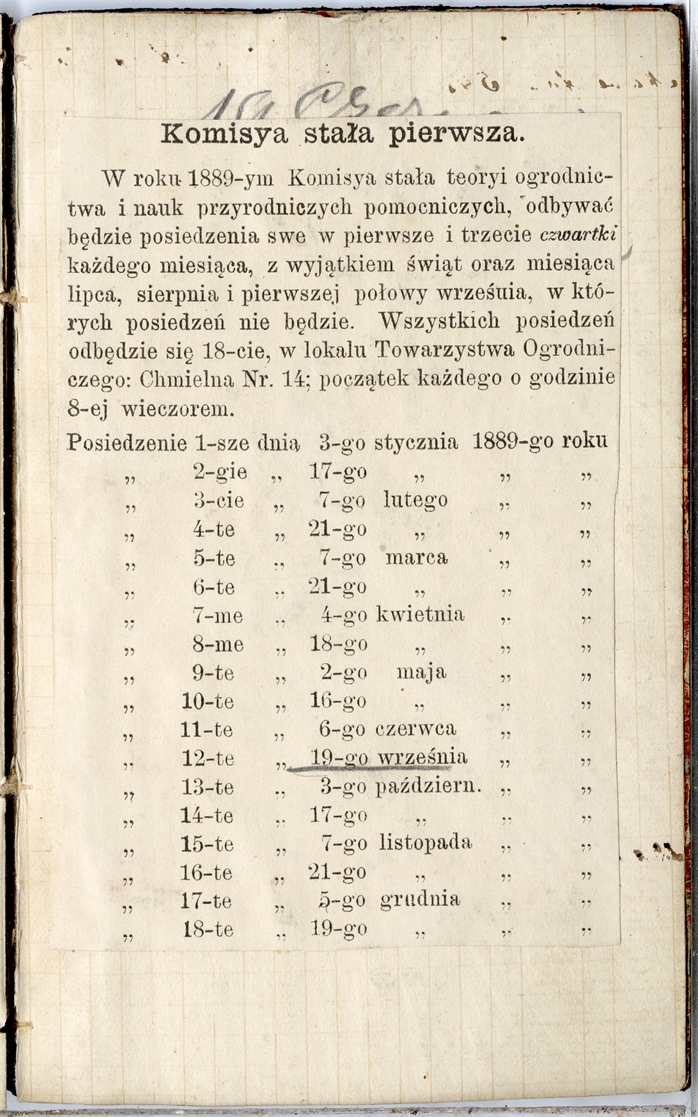 Komisya stała pierwsza.
W roku 1889-ym Komisya stała teoryi ogrodnic-
twa i nauk przyrodniczych pomocniczych, odbywać
będzie posiedzenia swe w pierwsze i trzecie czwartki
każdego miesiąca, z wyjątkiem świąt oraz miesiąca
lipca, sierpnia i pierwszej połowy września, w któ-
rych posiedzeń nie będzie. Wszystkich posiedzeń
odbędzie się 18-cie, w lokalu Towarzystwa Ogrodni-
czego: Chmielna Nr. 14; początek każdego o godzinie
8-ej wieczorem.
Posiedzenie 1-sze dnia 3-go stycznia 1889-go roku
„ 2-gie „ 17-go „ „ „
„ 3-cie „ 7-go lutego „ „
„ 4-te „ 21-go „ „ „
„ 5-te „ 7-go marca „ „
„ 6-te „ 21-go „ „ „
„ 7-me „ 4-go kwietnia „ „
„ 8-me „ 18-go „ „ „
„ 9-te „ 2-go maja „ „
„ 10-te „ 16-go „ „ „
„ 11-te „ 6-go czerwca „ „
„ 12-te „ 19-go września „ „
„ 13-te „ 3-go październ. „ „
„ 14-te „ 17-go „ „ „
„ 15-te „ 7-go listopada „ „
„ 16-te „ 21-go „ „ „
„ 17-te „ 5-go grudnia „ „
„ 18-te „ 19-go „ „ „